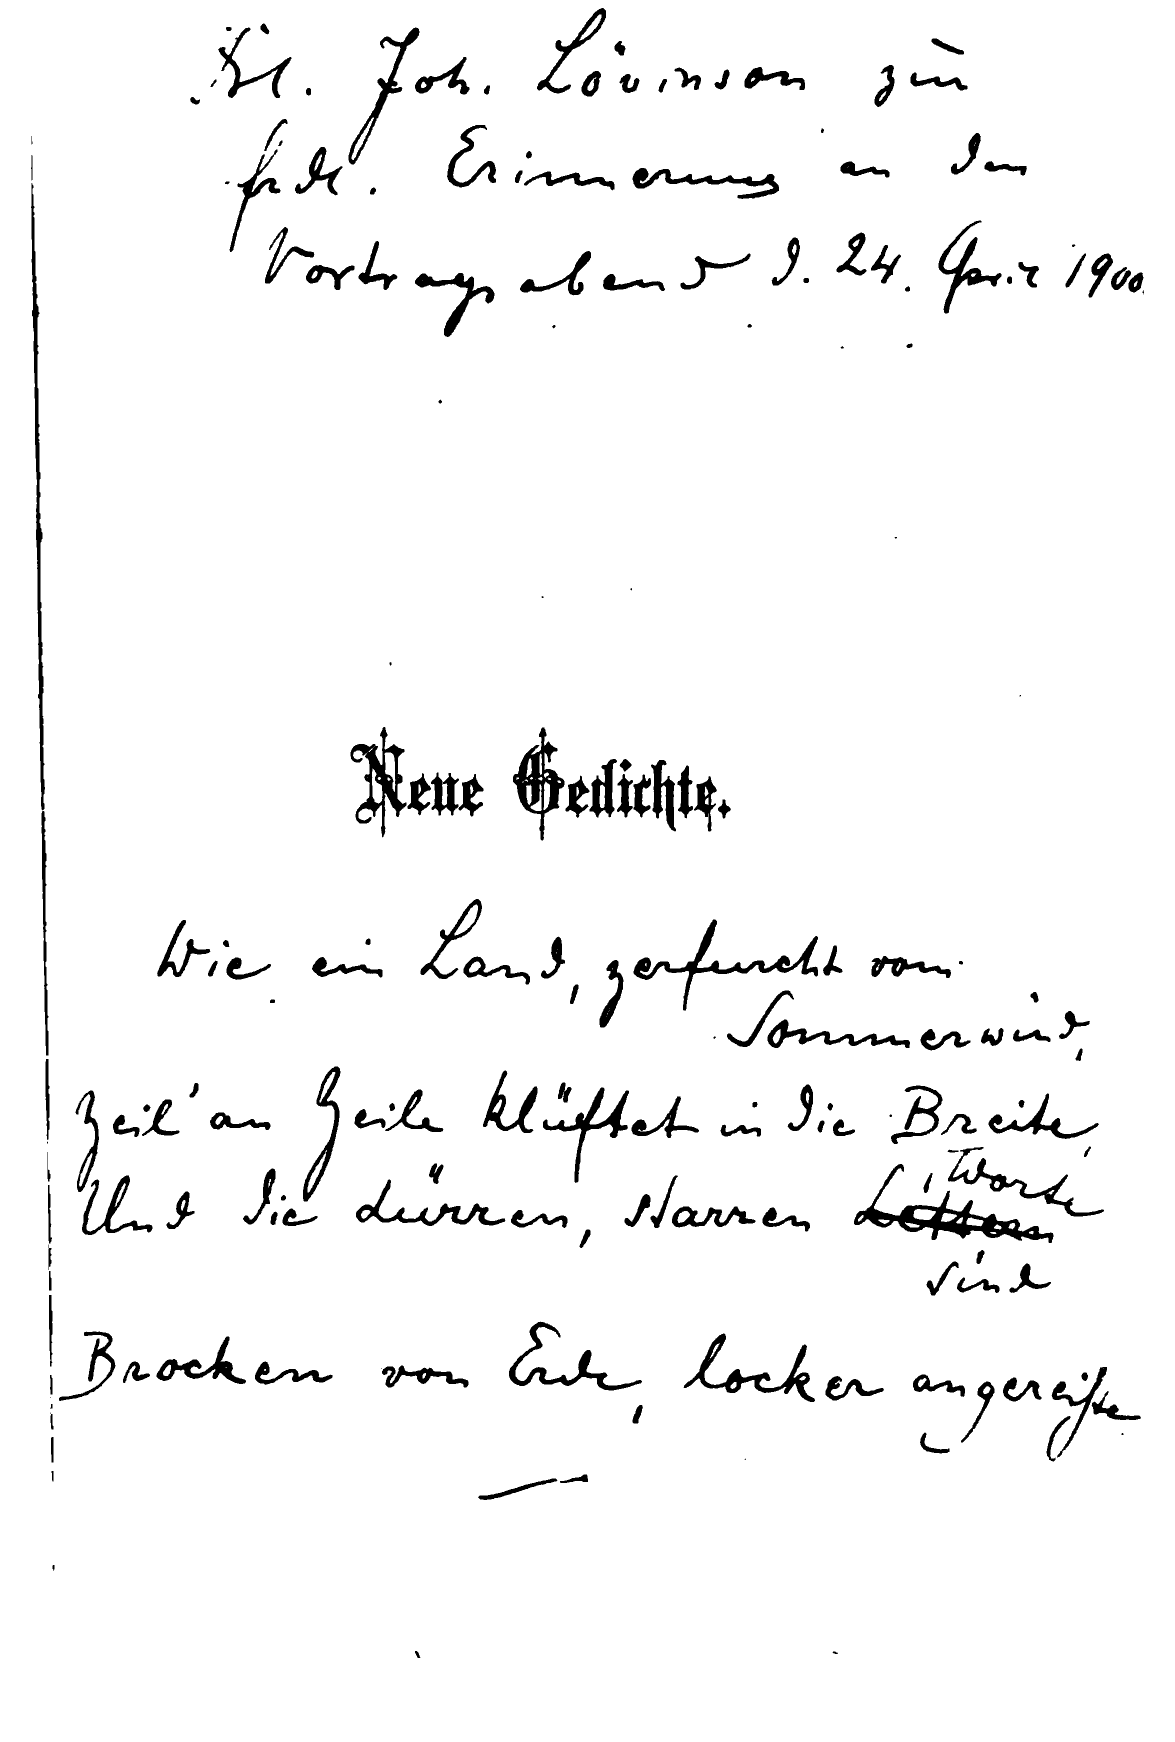 Frl. Joh. Lövinson zur
frdl. Erinnerung an den
Vortragsabend d. 24. April 1900.
Neue Gedichte.
Wie ein Land, zerfurcht vom
Sommerwind,
Zeil' an Zeile klüftet in die Breite,
Worte
Und die dürren, starren Lettern
sind
Brocken von Erde, locker angereihte